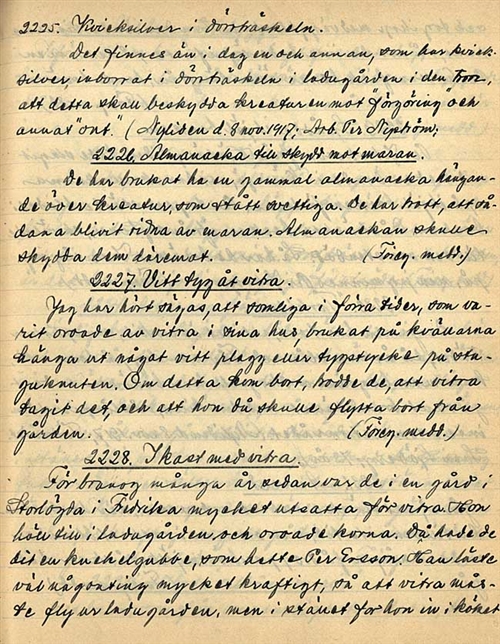 2225. Kvicksilver i dörrträskeln.
Det finnes än i dag en och annan, som har kvick-
silver, inborrat i dörrträskeln i ladugården i den tron,
att detta skall beskydda kreaturen mot "förgöring" och
annat "ont." (Nyliden d. 8 nov. 1917; Arb. Per Nipström)
2226. Almanacka till skydd mot maran.
De har brukat ha en gammal almanacka hängan-
de över kreatur, som stått svettiga. De har trott, att så-
dana blivit ridna av maran. Almanackan skulle
skydda dem däremot. (Föreg. medd.)
2227. Vitt tyg åt vitra.
Jag har hört sägas, att somliga i förra tider, som va-
rit oroade av vitra i sina hus, brukat på kvällarna
hänga ut något vitt plagg eller tygstycke på stu-
guknuten. Om detta kom bort, trodde de, att vitra
tagit det, och att hon då skulle flytta bort från
gården. (Föreg. medd.)
2228. I kast med vitra.
För bra nog många år sedan var de i en gård i
Storlögda i Fredrika mycket utsatta för vitra. Hon
höll till i ladugården och oroade korna. Då hade de
dit en kuckelgubbe, som hette Per Ersson. Han läste
väl någonting mycket kraftigt, så att vitra mås-
te fly ur ladugården, men i stället for hon in i köket